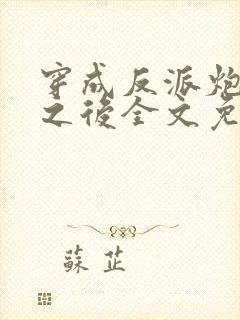 穿成反派炮
之後全文免
蘇芷